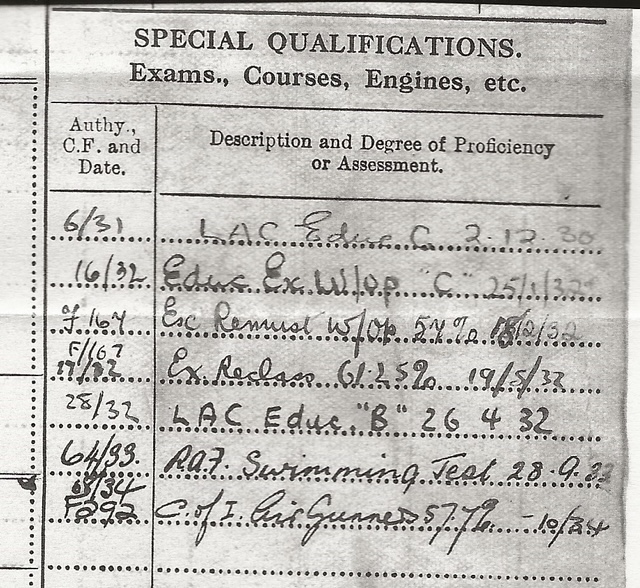 SPECIAL QUALIFICATIONS.
Exams., Courses, Engines, etc.
Authy., C.F. and Date.
Description and Degree of Proficiency or Assessment.
6/31 LAC Educ C 2.12.30
16/32 Educ Ex W/Op "C" 25/1/32
F.167 Ex Remust W/Op 57% 18/2/32
F/167
27/32 Ex Reclass 61.25% 19/5/32
28/32 LAC Educ. "B" 26 4 32
64/33. R.A.F. Swimming Test 28.9.33
68/34
F292 C. of I. Air Gunners 57.7% - 10/34